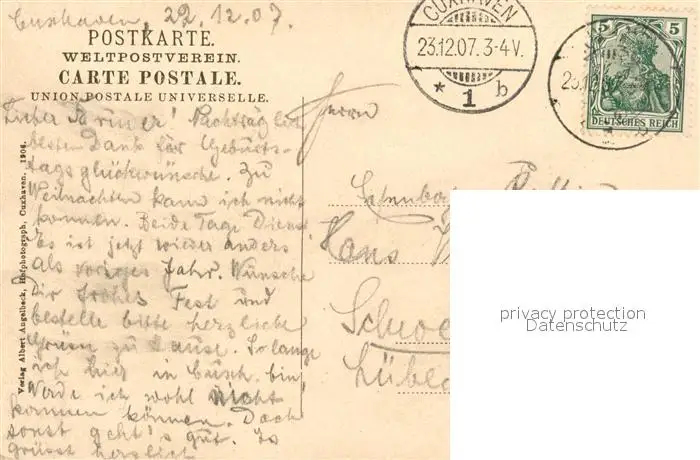 Cuxhaven, 22.12.07.
POSTKARTE.
WELTPOSTVEREIN.
CARTE POSTALE.
UNION POSTALE UNIVERSELLE.
CUXHAVEN
23.12.07. 3-4 V.
* 1 b
5 5
DEUTSCHES REICH
Lieber! Nachträglich
besten Dank für Geburts-
tagsglückwünsche. Zu
Weihnachten kann ich nicht
kommen. Beide Tage Dienst
Es ist jetzt wieder anders
als voriges Jahr. Wünsche
Dir frohes Fest und
bestelle bitte herzliche
Grüße zu Hause. Solange
ich hier in bin
Werde ich wohl nicht
kommen können. Doch
sonst geht's gut. Es
grüsst herzlich
Herrn
Hans
Lübec
Verlag Albert Angelbeck, Hofphotograph, Cuxhaven. 1904.
privacy protection
Datenschutz